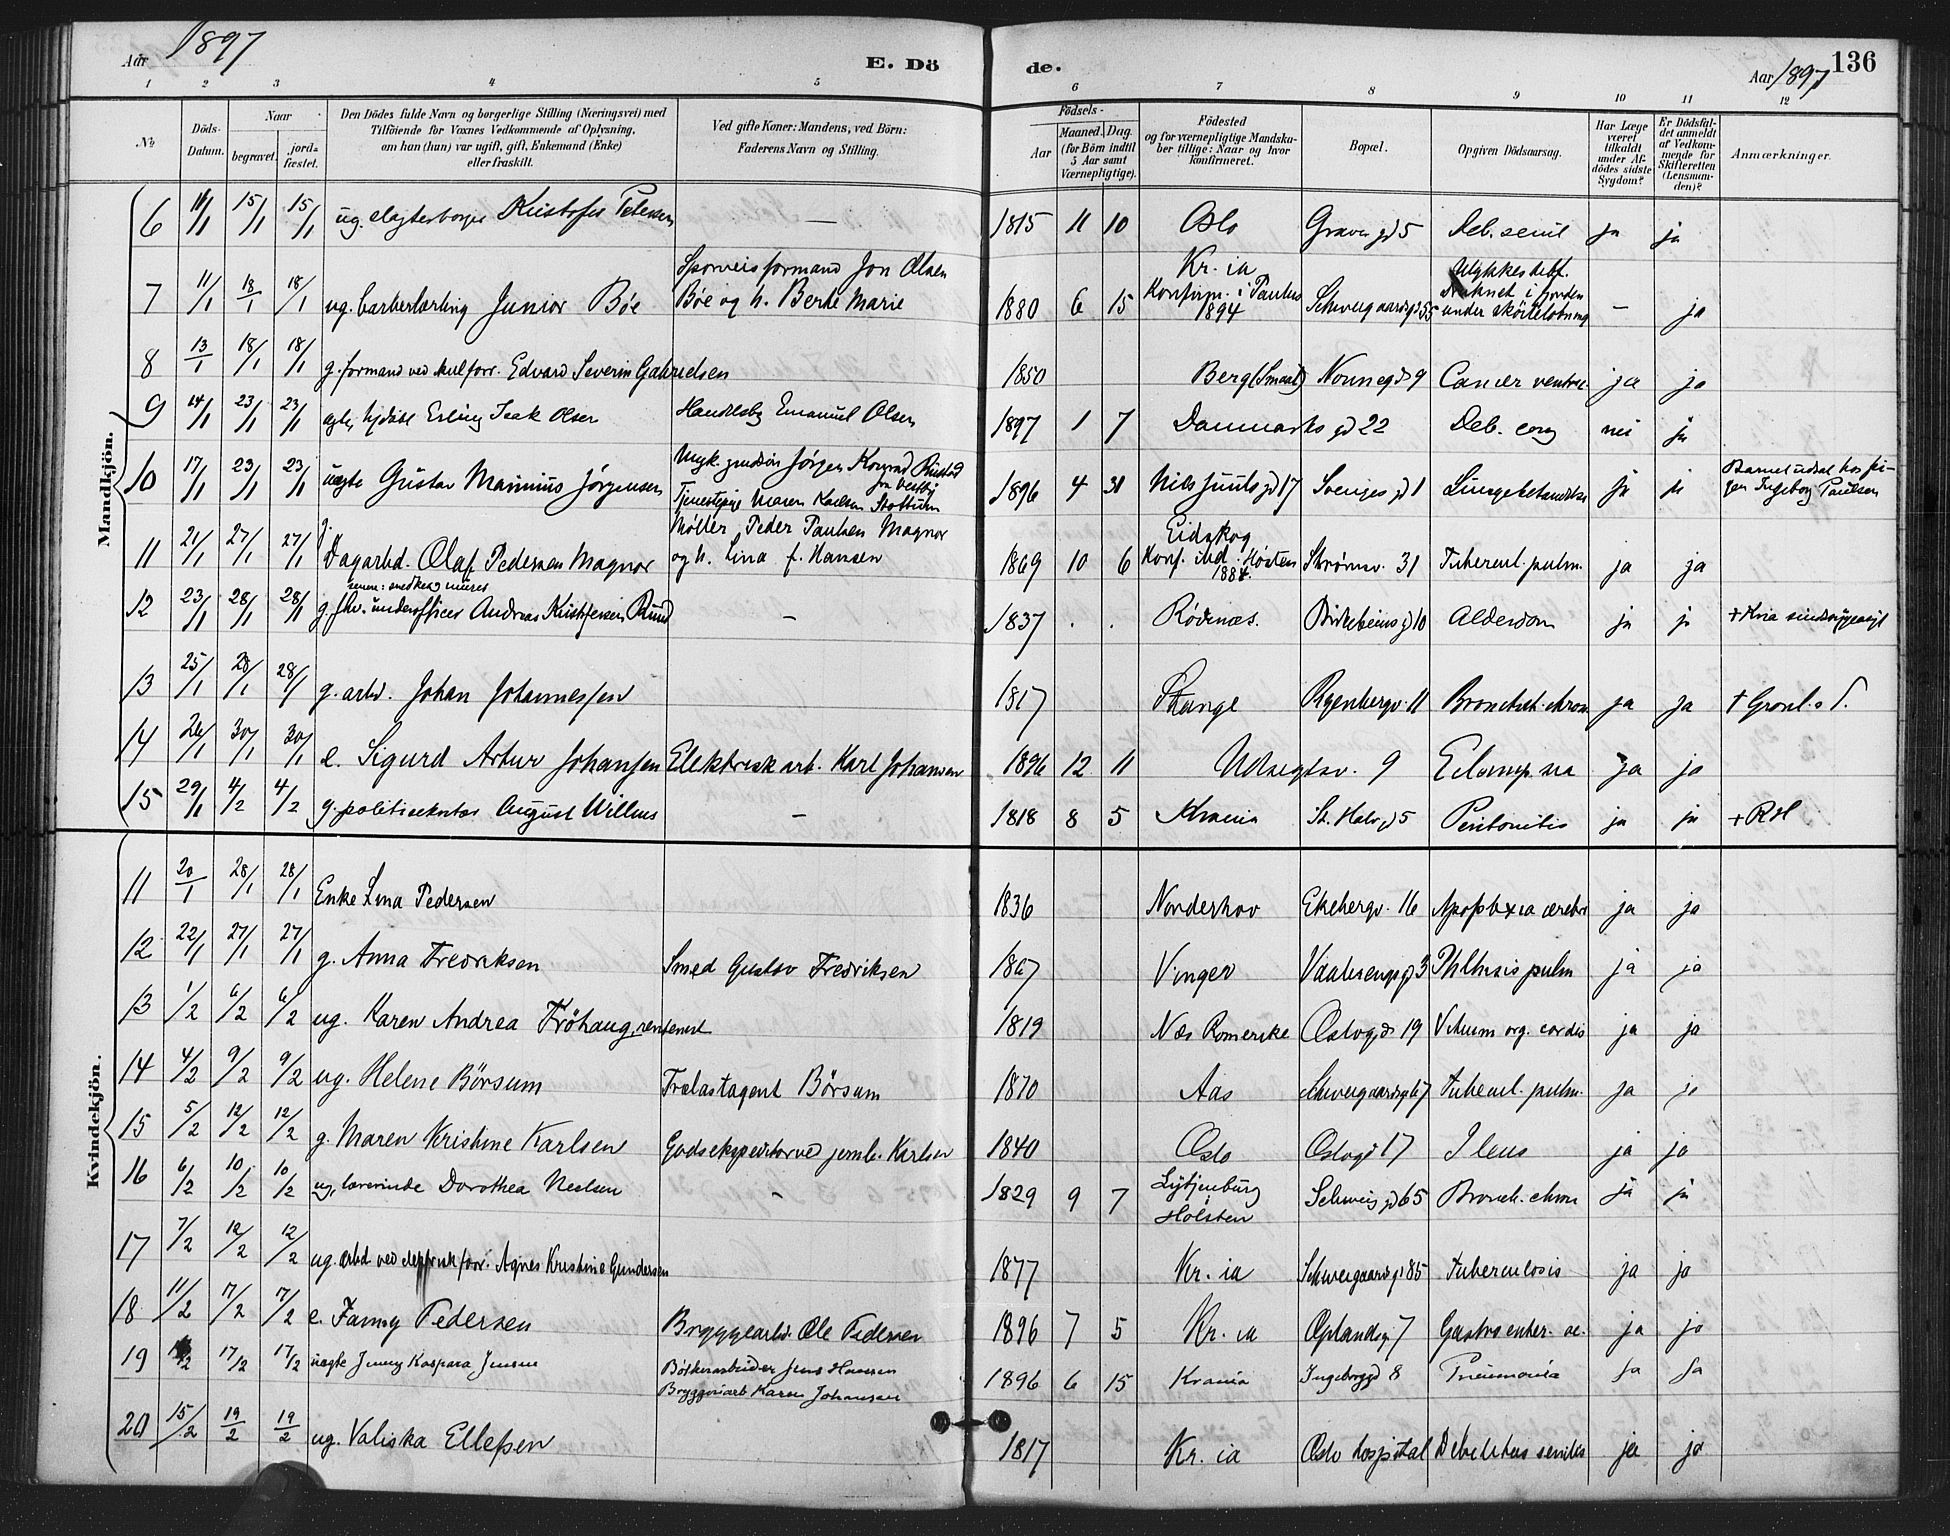 Aar 1897
E. Dö
de.
Aar 1897
136
1 2 3 4 5 6 7 8 9 10 11 12
№
Döds-Datum.
Naar
begravet.
jord-fæstet.
Den Dödes fulde Navn og borgerlige Stilling (Næringsvei) med
Tilföiende for Voxnes Vedkommende af Oplysning,
om han (hun) var ugift, gift, Enkemand (Enke)
eller fraskilt.
Ved gifte Koner: Mandens, ved Börn:
Faderens Navn og Stilling.
Födsels-
Aar
Maaned. Dag.
(for Börn indtil
5 Aar samt
Værnepligtige).
Födested
og for værnepligtige Mandska-
ber tillige: Naar og hvor
konfirmeret.
Bopæl.
Opgiven Dödsaarsag.
Har Læge
været
tilkaldt
under Af-
dödes sidste
Sygdom?
Er Dödsfal-
det anmeldt
af Vedkom-
mende for
Skifteretten
(Lensman-
den)?
Anmærkninger.
Mandkjön.
6 11/1 15/1 15/1 ug. Kristofer Petersen — 1815 11 10 Oslo Gravergd 5 Deb. senil ja ja
Sporveisformand Jon Olsen
7 11/1 18/1 18/1 ug. barberlærling Junior Bøe Bøe og h. Berte Marie 1880 6 15 Kr.ia
Konfirm. i Paulus
1894 Schweigaardsgd 55 Ulykkestilf.
druknet i fjorden
under skøiteløbning — ja
8 13/1 18/1 18/1 g. formand ved kulforr. Edvard Severin Gabrielsen 1850 Berg (Smaal) Nonnegd 9 Cancer ventric. ja ja
9 14/1 23/1 23/1 Erling Isak Olsen Handelsbg Emanuel Olsen 1897 1 7 Danmarks gd 22 Deb. cong nei ja
10 17/1 23/1 23/1 uægte Gustav Marinius Jørgensen Jørgen Konrad Rustad
fra Vestby
Tjenestepige Maren 1896 4 31 Nils Juuls gd 17 Sveriges gd 1 ja ja Barnet udsat hos pi-
gen Ingeborg Paulsen
11 21/1 27/1 27/1 Dagarbd. Olaf Pedersen Magnor Møller Peder Paulsen Magnor
og h. Lina f. Hansen 1869 10 6 Eidskog
Konf. ibd. Høsten
1884. Strømsv. 31 Tubercul. pulm. ja ja
12 23/1 28/1 28/1 g. fhv. underofficer Andreas Kristiansen Ruud — 1837 . . Rødenæs. Birkebeinsgd 10 Alderdom ja ja + Kria sindssygeasyl
13 25/1 28/1 28/1 g. arbd. Johan Johannessen 1817 Stange Ryenbergv. 11 Bronchit. chron ja ja + Grønl. s.
14 26/1 30/1 30/1 e. Sigurd Artur Johansen Elektrisk arb. Karl Johansen 1896 12 11 Udsigtsv. 9 Eclampsia ja ja
15 29/1 4/2 4/2 g. politibetjent August Willms — 1818 8 5 Kr.ania St. Halv.gd 5 Peritonitis ja ja + RH
Kvindekjön.
11 20/1 28/1 28/1 Enke Lina Pedersen 1836 Norderhov Ekebergv. 16 Apoplexia cerebri ja ja
12 22/1 27/1 27/1 g. Anna Fredriksen Smed Gustav Fredriksen 1867 Vinger Vaalerengsgd 3 Phthisis pulm ja ja
13 1/2 6/2 6/2 ug. Karen Andrea Frøhaug, rentenist 1819 Næs Romerike Oslogd 19 Vitium org. cordis ja ja
14 4/2 9/2 9/2 ug. Helene Børsum Trælastagent Børsum 1870 Aas Schweigaardsgd 67 Tubercul. pulm. ja ja
15 5/2 12/2 12/2 g. Maren Kristine Karlsen Godsekspeditør ved jernb. Karlsen 1840 Oslo Oslogd 17 Ileus ja ja
16 6/2 10/2 10/2 ug. lærerinde Dorothea Nielsen — 1829 9 7 Lütjenburg
Holsten Schweig.gd 65 Bronch. chron ja ja
17 7/2 12/2 12/2 ug. arbd ved Agnes Kristine Gundersen 1877 Kr.ia Schweigaardsgd 85 Tuberculosis ja ja
18 11/2 17/2 17/2 e. Fanny Pedersen Bryggearbd. Ole Pedersen 1896 7 5 Kr.ia Oplandsgd 7 Gastro enter. ac. ja ja
19 17/2 17/2 uægte Jenny Kaspara Jensen Bøtkerarbeider Jens Hansen
Bryggeriarb Karen Johansen 1896 6 15 Krania Ingeborggd 8 Pneumonia ja ja
20 15/2 19/2 19/2 ug. Valiska Ellefsen 1817 Kr.ia Oslo hospital Debilitas senilis ja ja